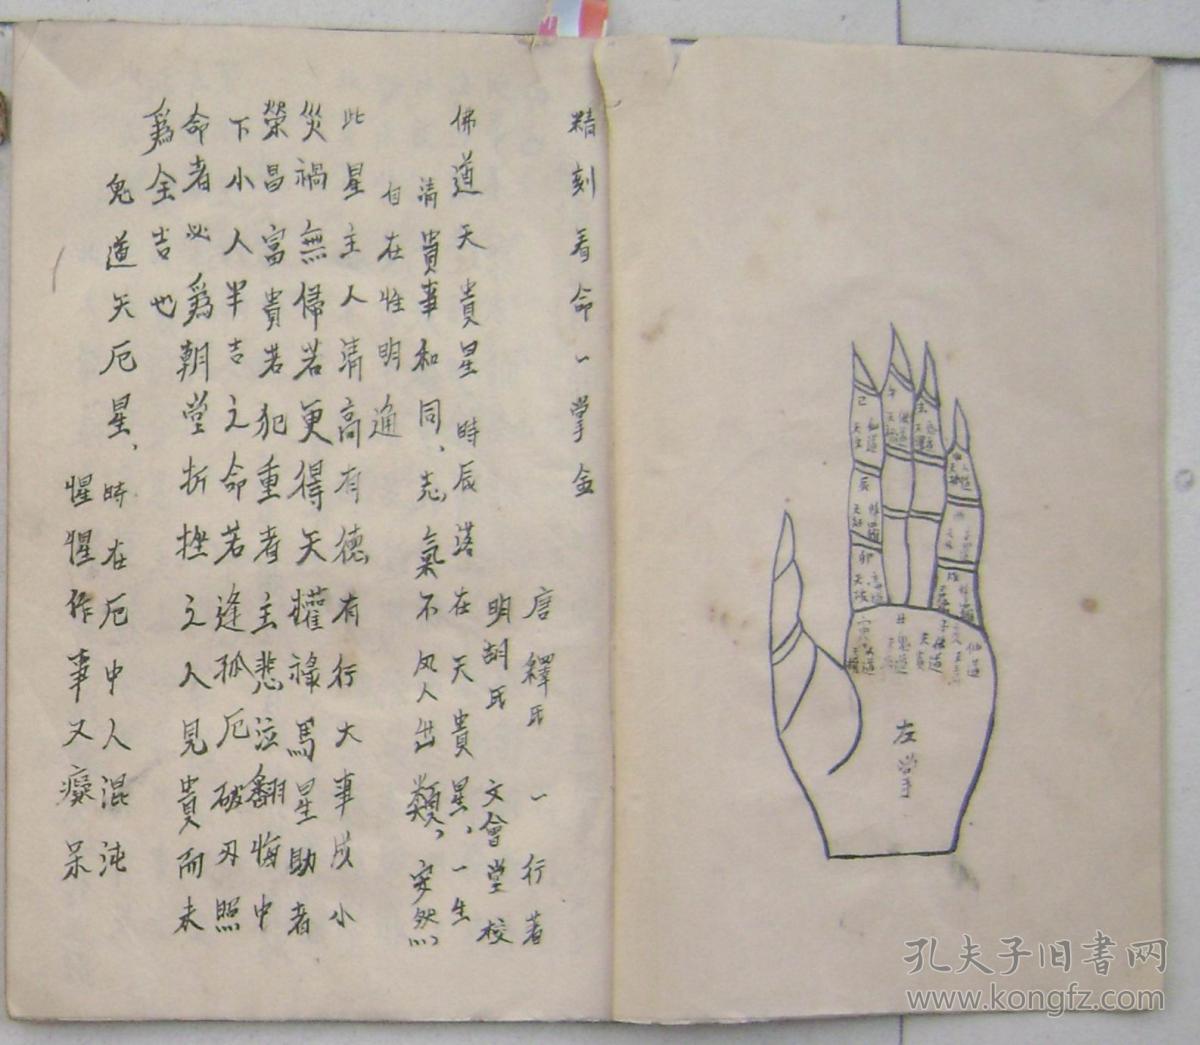 精刻看命一掌金
唐釋氏 一行著
明胡氏 文會堂校
佛道天貴星 時辰落在天貴星、一生
清貴事和同、志氣不凡人出類、安然
自在性明通
此星主人清高有德有行大事成小
災禍無歸若更得天權祿馬星助者
榮昌富貴若犯重者主悲泣翻悔中
下小人半吉之命若逢孤厄破刃照
命者必爲朝堂折挫之人見貴而未
爲全吉也
鬼道天厄星、時在厄中人混沌
惺惺作事又癡呆
左掌
孔夫子旧書网
www.kongfz.com